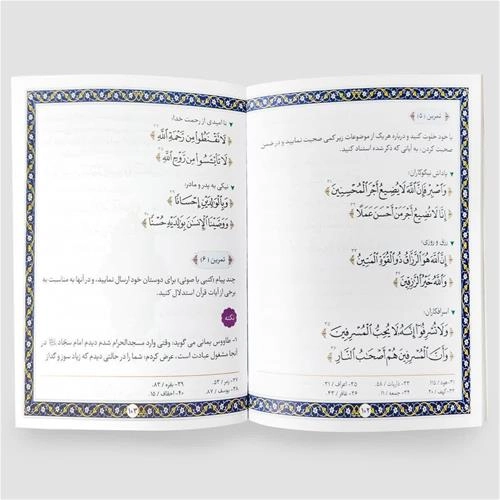 تمرین (۵)
با خود خلوت کنید و درباره هریک از موضوعات زیر کمی صحبت نمایید و در ضمن
صحبت کردن، به آیاتی که ذکر شده استناد کنید.
پاداش نیکوکاران:
وَاصْبِرْ فَإِنَّ اللَّهَ لَا يُضِيعُ أَجْرَ الْمُحْسِنِينَ
إِنَّا لَا نُضِيعُ أَجْرَ مَنْ أَحْسَنَ عَمَلًا
رزق و روزی:
إِنَّ اللَّهَ هُوَ الرَّزَّاقُ ذُو الْقُوَّةِ الْمَتِينُ
وَاللَّهُ خَيْرُ الرَّازِقِينَ
اسرافکاران:
وَلَا تُسْرِفُوا إِنَّهُ لَا يُحِبُّ الْمُسْرِفِينَ
وَأَنَّ الْمُسْرِفِينَ هُمْ أَصْحَابُ النَّارِ
۳۱- هود / ۱۱۵. ۳۳- ذاریات / ۵۸. ۳۵- اعراف / ۳۱.
۳۲- کهف / ۳۰. ۳۴- جمعه / ۱۱. ۳۶- غافر / ۴۳.
ناامیدی از رحمت خدا:
لَا تَقْنَطُوا مِن رَّحْمَةِ اللَّهِ
لَا تَايْئَسُوا مِن رَّوْحِ اللَّهِ
نیکی به پدر و مادر:
وَبِالْوَالِدَيْنِ إِحْسَانًا
وَوَصَّيْنَا الْإِنسَانَ بِوَالِدَيْهِ حُسْنًا
تمرین (۶)
چند پیام (کتبی یا صوتی) برای دوستان خود ارسال نمایید، و در آنها به مناسبت به
برخی از آیات قرآن استدلال کنید.
نکته
۱- طاووس یمانی می گوید: وقتی وارد مسجدالحرام شدم دیدم امام سجاد
آنجا مشغول عبادت است، عرض کردم: شما را در حالتی دیدم که زیاد سوز و گداز
۳۷- زمر / ۵۳. ۳۹- بقره / ۸۳.
۳۸- یوسف / ۸۷. ۴۰- احقاف / ۱۵.